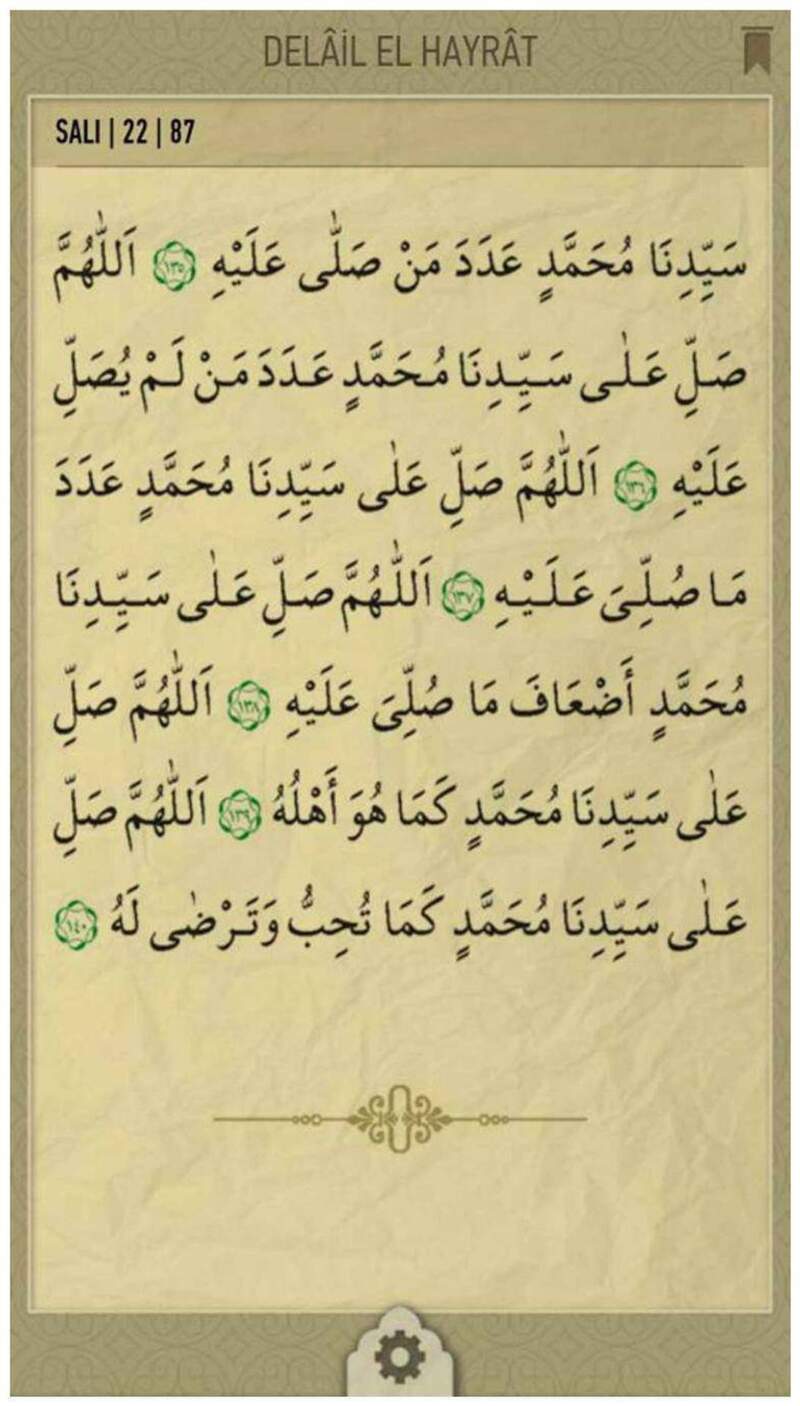 DELÂİL EL HAYRÂT
SALI | 22 | 87
سَيِّدِنَا مُحَمَّدٍ عَدَدَ مَنْ صَلّٰى عَلَيْهِ ١٣٥ اَللّٰهُمَّ
صَلِّ عَلٰى سَيِّدِنَا مُحَمَّدٍ عَدَدَ مَنْ لَمْ يُصَلِّ
عَلَيْهِ ١٣٦ اَللّٰهُمَّ صَلِّ عَلٰى سَيِّدِنَا مُحَمَّدٍ عَدَدَ
مَا صُلِّىَ عَلَيْهِ ١٣٧ اَللّٰهُمَّ صَلِّ عَلٰى سَيِّدِنَا
مُحَمَّدٍ أَضْعَافَ مَا صُلِّىَ عَلَيْهِ ١٣٨ اَللّٰهُمَّ صَلِّ
عَلٰى سَيِّدِنَا مُحَمَّدٍ كَمَا هُوَ أَهْلُهُ ١٣٩ اَللّٰهُمَّ صَلِّ
عَلٰى سَيِّدِنَا مُحَمَّدٍ كَمَا تُحِبُّ وَتَرْضٰى لَهُ ١٤٠